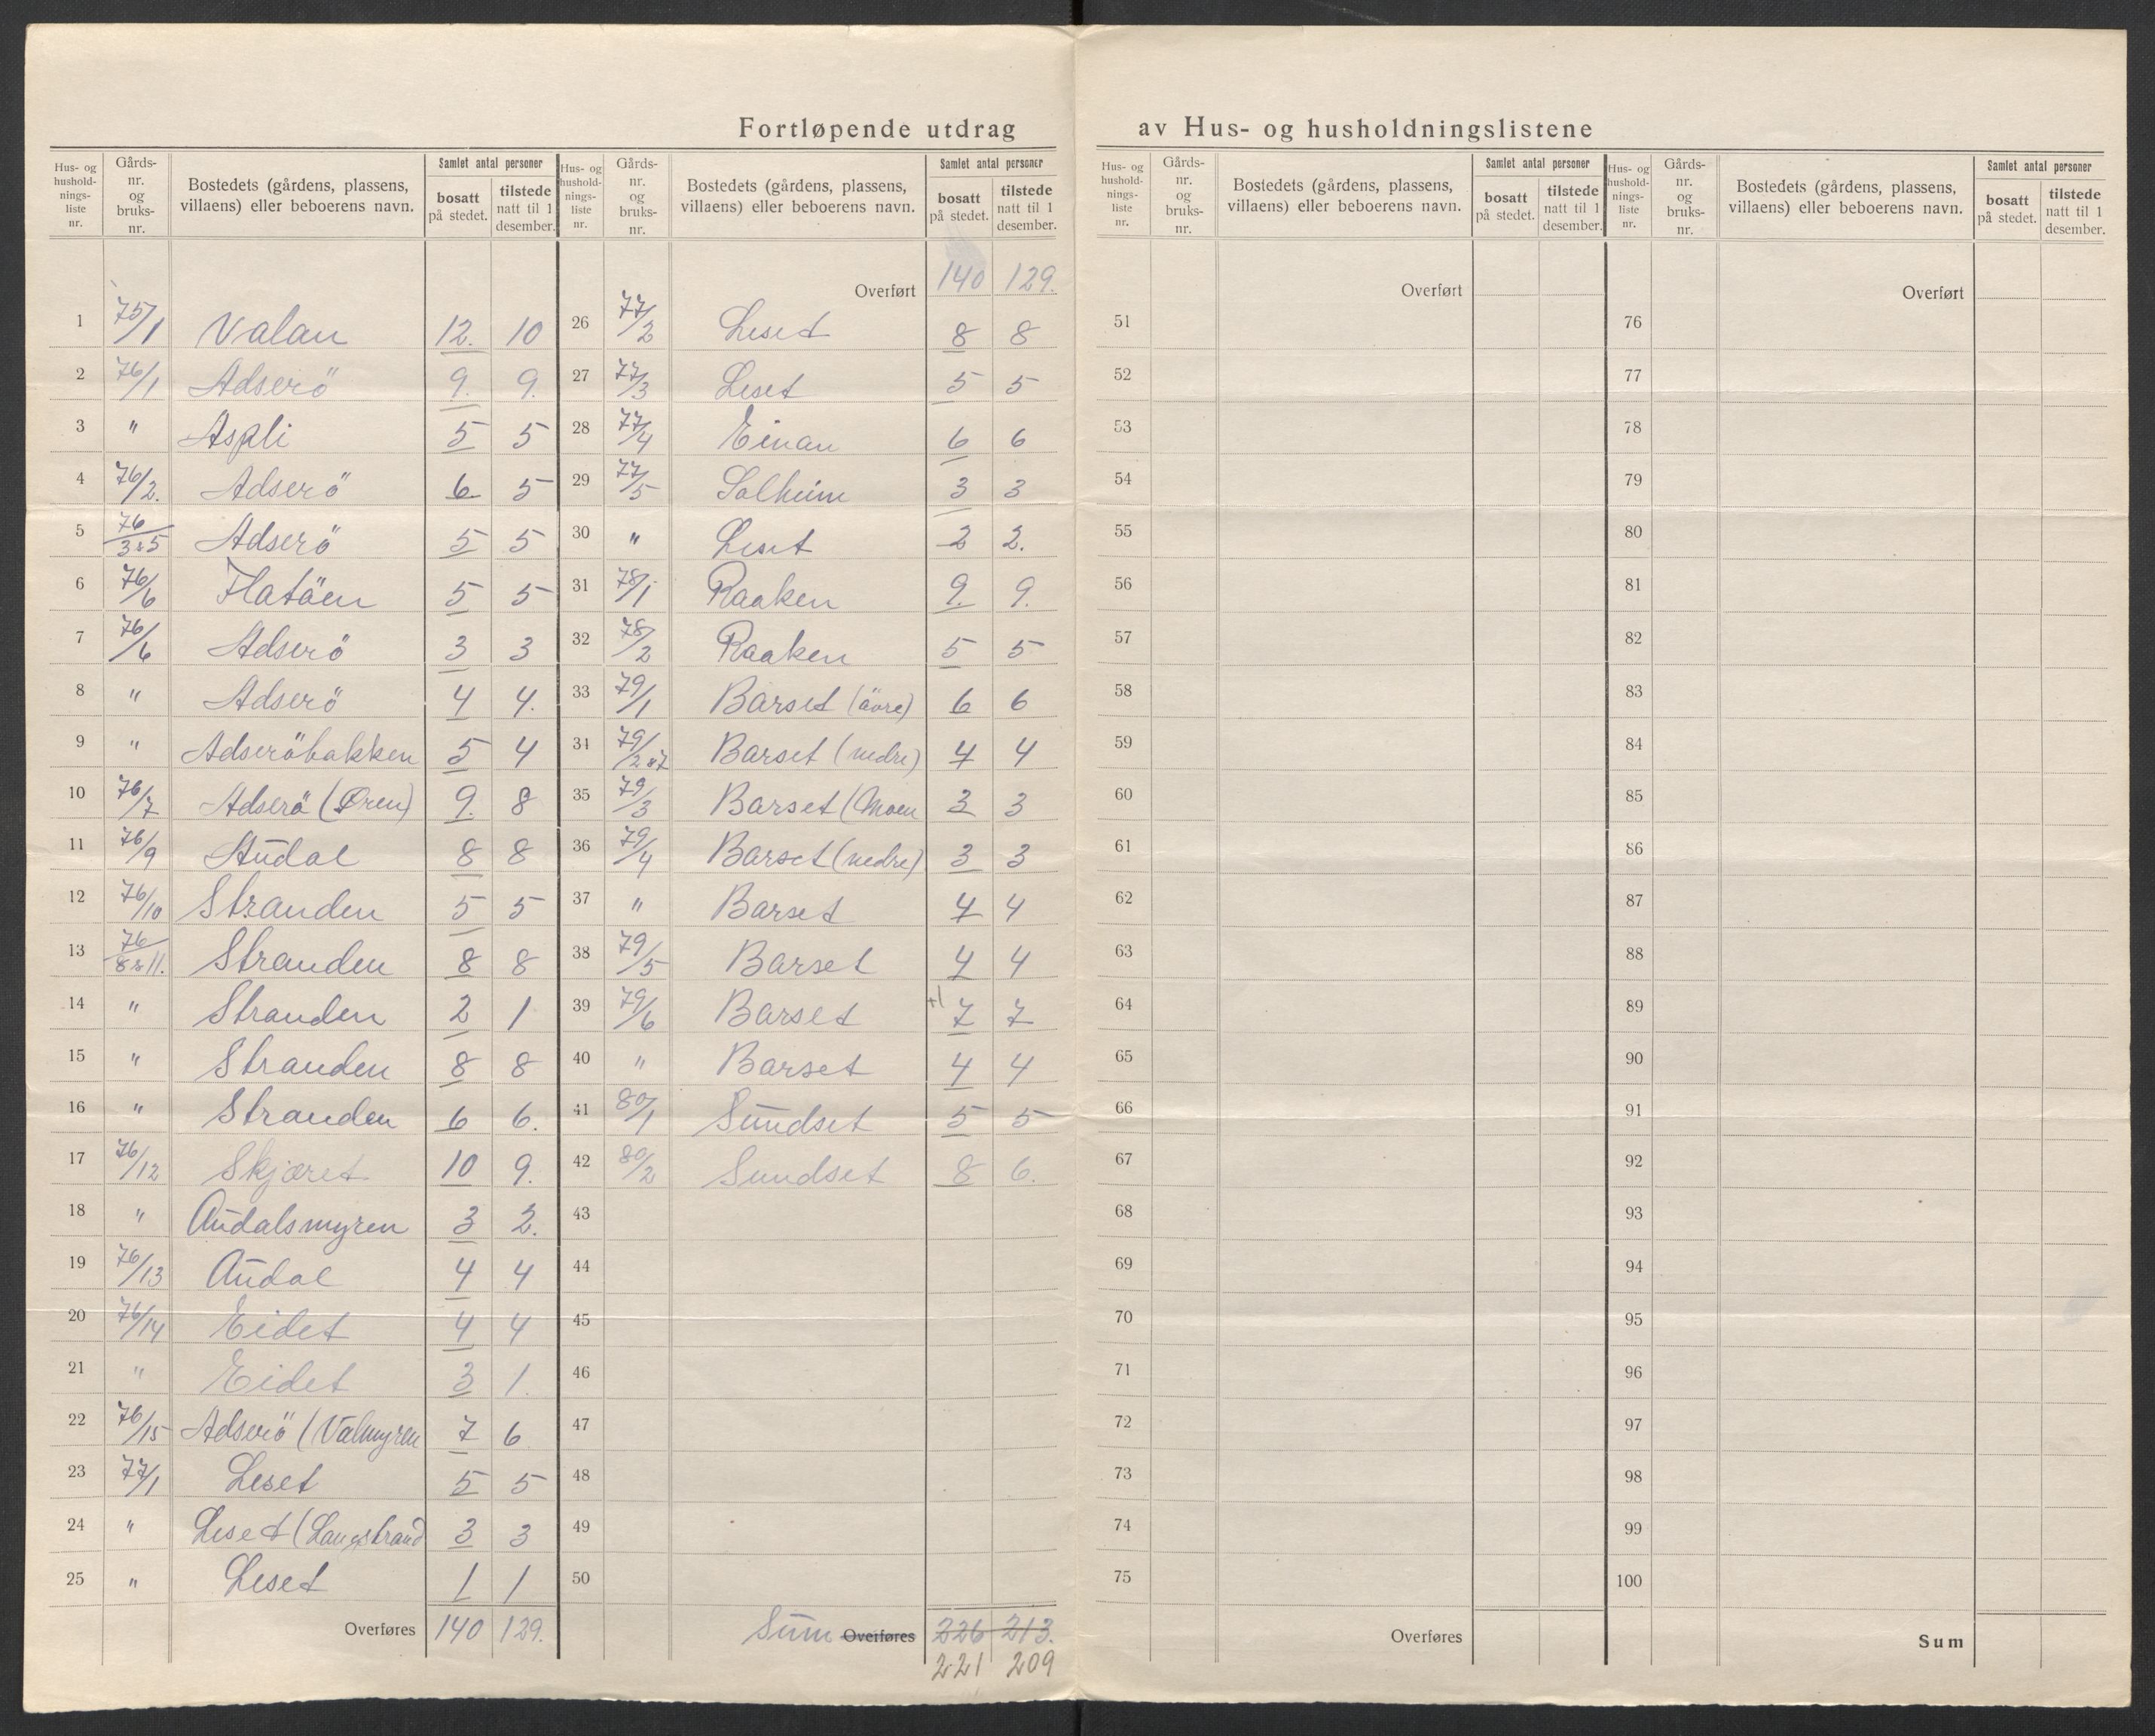 Fortløpende utdrag av Hus- og husholdningslistene
Hus- og hushold- nings- liste nr. | Gårds- nr. og bruks- nr. | Bostedets (gårdens, plassens, villaens) eller beboerens navn. | Samlet antal personer | bosatt på stedet. | tilstede natt til 1 desember.
1 75/1 Valan 12. 10
2 76/1 Adserö 9. 9.
3 " Aspli 5 5
4 76/2. Adserö 6 5
5 76/3&5 Adserö 5 5
6 76/6 Flatöen 5 5
7 76/6 Adserö 3 3
8 " Adserö 4 4.
9 " Adseröbakken 5 4
10 76/7 Adserö (Øren) 9. 8
11 76/9 Audal 8 8
12 76/10 Stranden 5 5
13 76/8&11. Stranden 8 8
14 " Stranden 2 1
15 " Stranden 8 8
16 " Stranden 6 6.
17 76/12 Skjæret 10 9.
18 " Audalsmyren 3 2.
19 76/13 Audal 4 4
20 76/14 Eidet 4 4
21 " Eidet 3 1.
22 76/15 Adserö (Valmyren 7 6
23 77/1 Leset 5 5
24 " Leset (Langstrand 3 3
25 " Leset 1 1
Overføres 140 129.
Hus- og hushold- nings- liste nr. | Gårds- nr. og bruks- nr. | Bostedets (gårdens, plassens, villaens) eller beboerens navn. | Samlet antal personer | bosatt på stedet. | tilstede natt til 1 desember.
Overført 140 129.
26 77/2 Leset 8 8
27 77/3 Leset 5 5
28 77/4 Einan 6 6
29 77/5 Solheim 3 3
30 " Leset 2 2.
31 78/1 Raaken 9. 9.
32 78/2 Raaken 5 5
33 79/1 Barset (övre) 6 6
34 79/2&7 Barset (nedre) 4 4
35 79/3 Barset (Moen 3 3
36 79/4 Barset (nedre) 3 3
37 " Barset 4 4
38 79/5 Barset 4 4
39 79/6 Barset +1 7 7
40 " Barset 4 4
41 80/1 Sundset 5 5
42 80/2 Sundset 8 6.
43
44
45
46
47
48
49
50
Sum Overføres 226 213.
221 209
Hus- og hushold- nings- liste nr. | Gårds- nr. og bruks- nr. | Bostedets (gårdens, plassens, villaens) eller beboerens navn. | Samlet antal personer | bosatt på stedet. | tilstede natt til 1 desember.
Overført
51
52
53
54
55
56
57
58
59
60
61
62
63
64
65
66
67
68
69
70
71
72
73
74
75
Overføres
Hus- og hushold- nings- liste nr. | Gårds- nr. og bruks- nr. | Bostedets (gårdens, plassens, villaens) eller beboerens navn. | Samlet antal personer | bosatt på stedet. | tilstede natt til 1 desember.
Overført
76
77
78
79
80
81
82
83
84
85
86
87
88
89
90
91
92
93
94
95
96
97
98
99
100
Sum